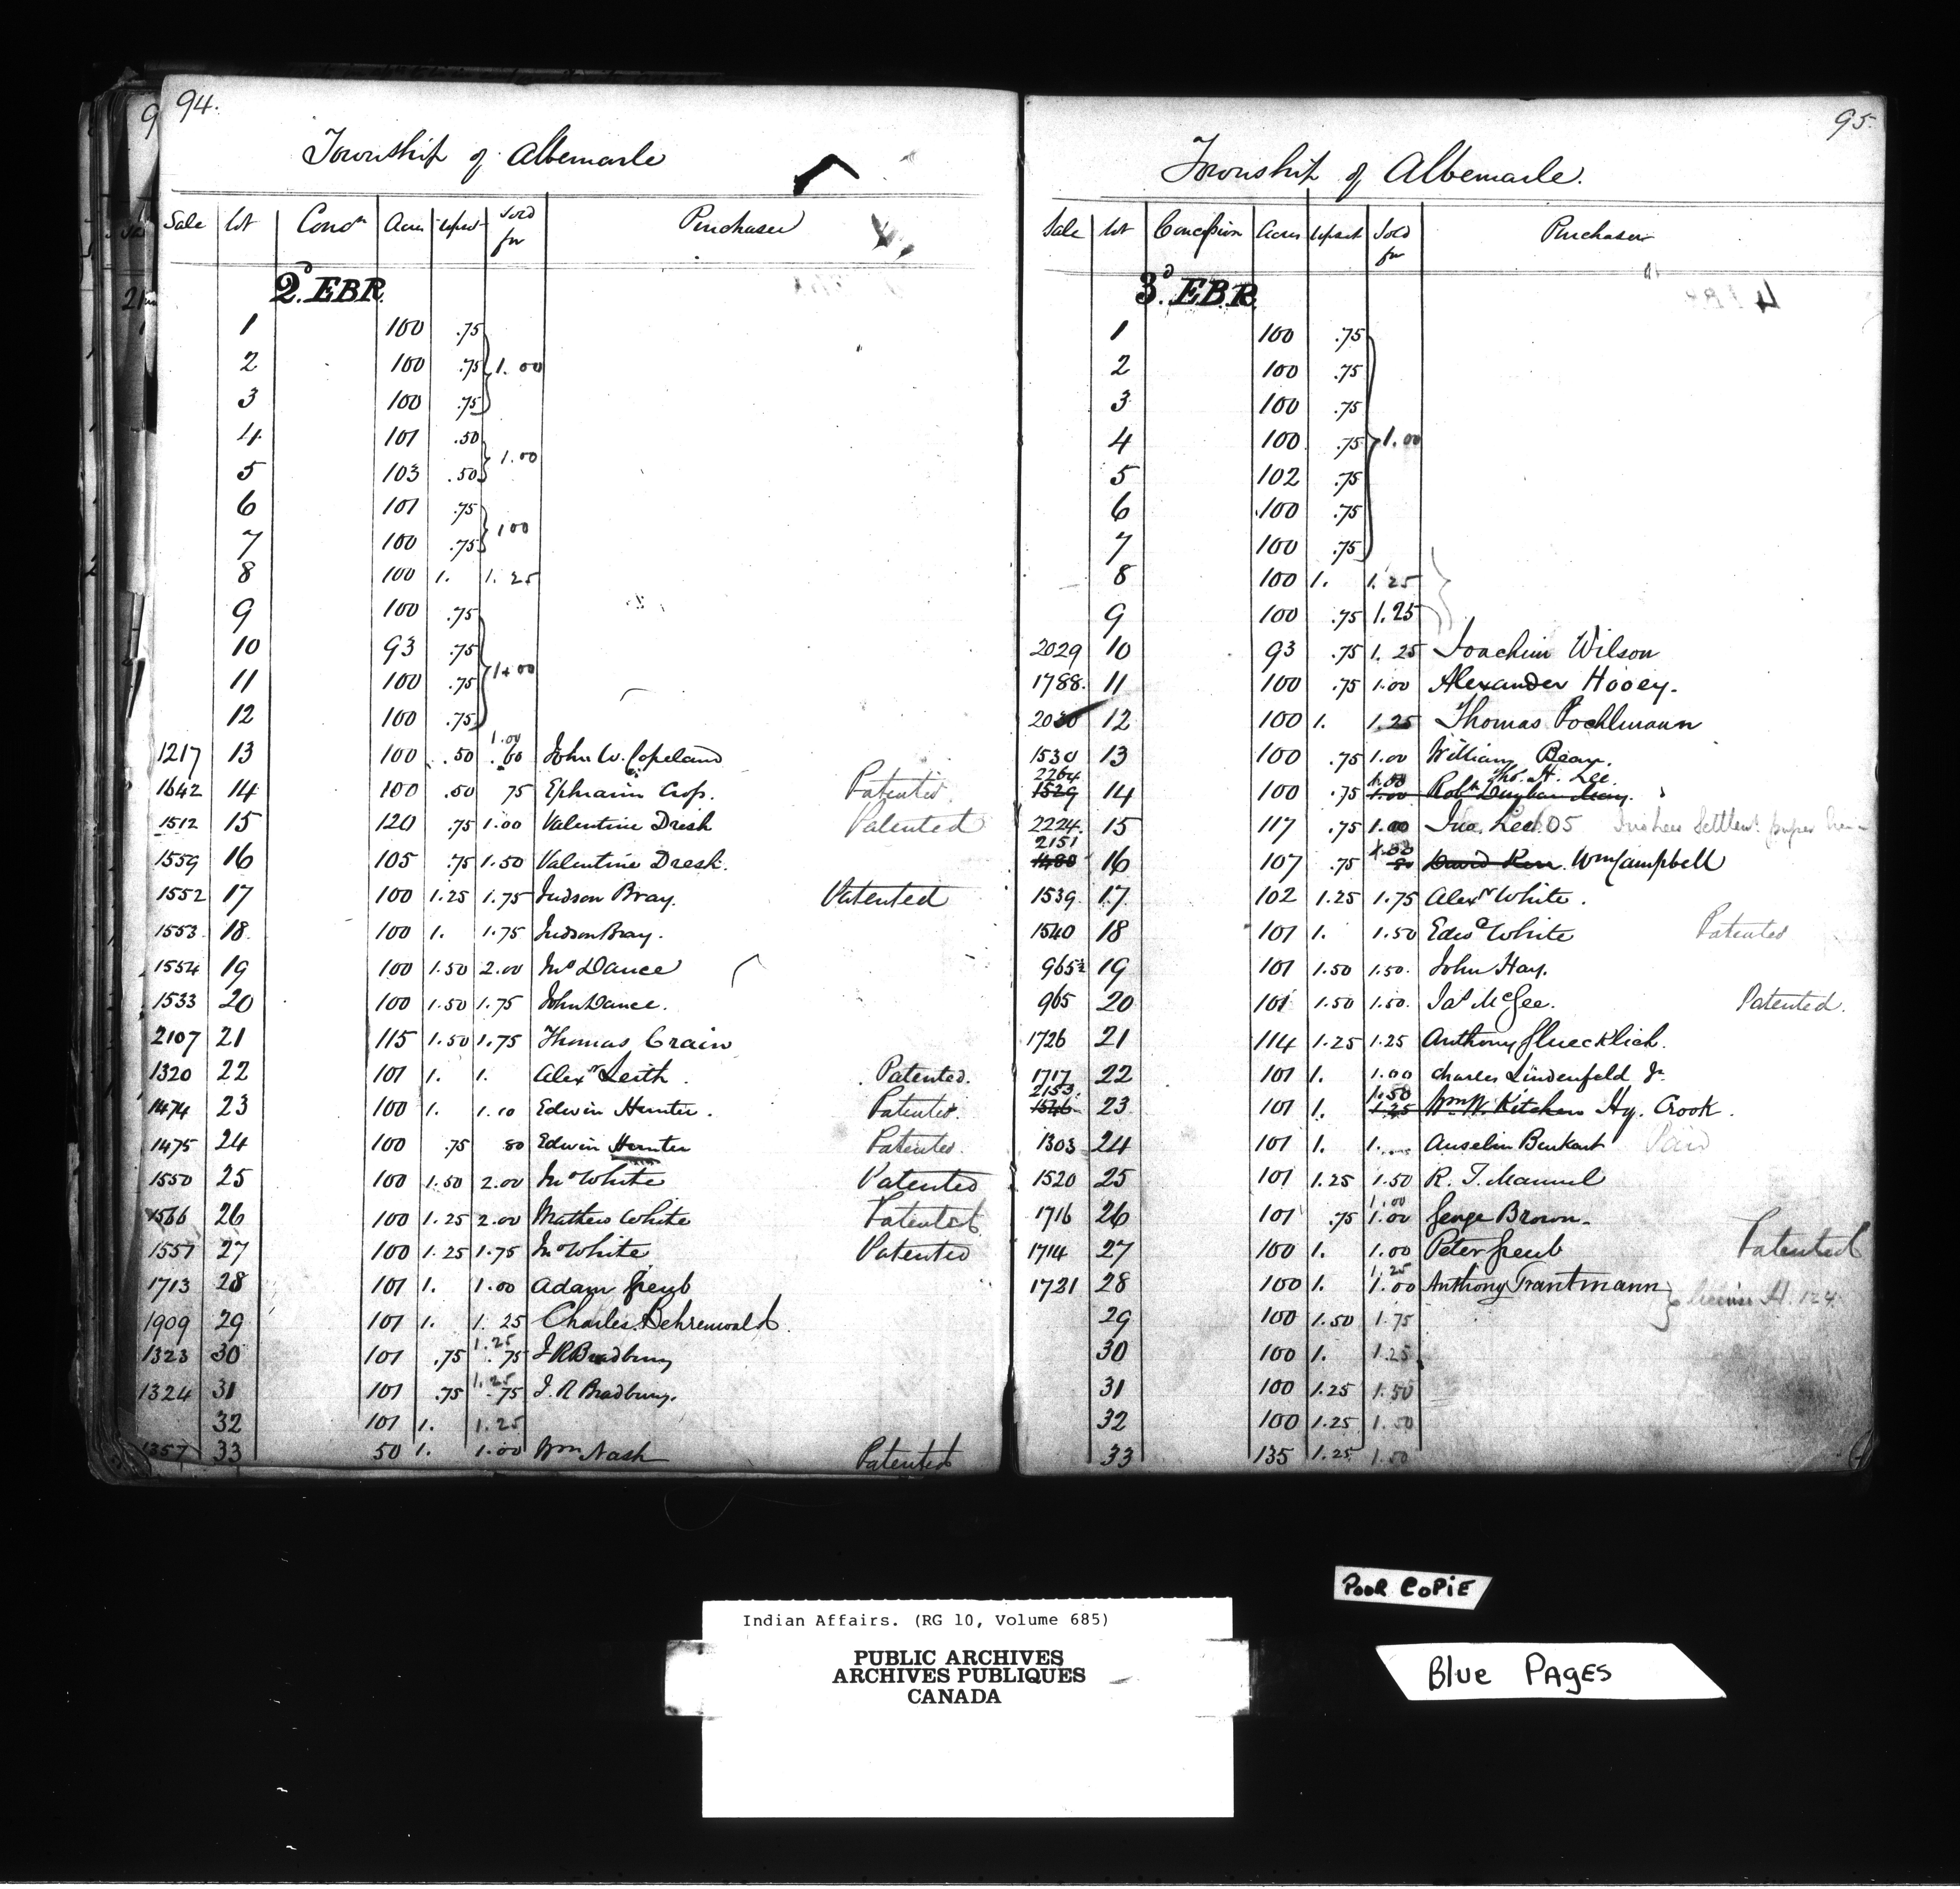 94.
Township of Albemarle
Sale Lot Conc<sup>n</sup> Acres Upset Sold for Purchaser
2<sup>d</sup>. EBR.
1 100 .75
2 100 .75 1.00
3 100 .75
4 101 .50
5 103 .50 1.00
6 101 .75
7 100 .75 1 00
8 100 1. 1.25
9 100 .75
10 93 .75
11 100 .75 1.00
12 100 .75
1217 13 100 .50 1.00 .60 John W. Copeland
1642 14 100 .50 75 Ephraim Crofs. Patented.
1512 15 120 .75 1.00 Valentine Dresh Patented
1559 16 105 .75 1.50 Valentine Dresh.
1552 17 100 1.25 1.75 Judson Bray. Patented
1553 18 100 1. 1.75 Judson Bray.
1554 19 100 1.50 2.00 Jno Dance
1533 20 100 1.50 1.75 John Dance.
2107 21 115 1.50 1.75 Thomas Crain
1320 22 101 1. 1. Alex<sup>r</sup> Leith. Patented.
1474 23 100 1. 1.10 Edwin Hunter. Patented.
1475 24 100 .75 80 Edwin Hunter Patented.
1550 25 100 1.50 2.00 Jno White Patented
1566 26 100 1.25 2.00 Mathew White Patented
1551 27 100 1.25 1.75 Jno White Patented
1713 28 101 1. 1.00 Adam Greub
1909 29 101 1. 1.25 Charles Behrenwald.
1323 30 101 .75 1.25 .75 J R Bradbury
1324 31 101 .75 1.25 .75 J. R Bradbury.
32 101 1. 1.25
1357 33 50 1. 1.00 Wm Nash Patented
95.
Township of Albemarle.
Sale Lot Concefsion Acres Upset Sold for Purchaser
3<sup>d</sup>. EB.R.
1 100 .75
2 100 .75
3 100 .75
4 100 .75 1.00
5 102 .75
6 100 .75
7 100 .75
8 100 1. 1.25
9 100 .75 1.25
2029 10 93 .75 1.25 Joachim Wilson
1788. 11 100 .75 1.00 Alexander Hooey.
2030 12 100 1. 1.25 Thomas Pochlmann
1530 13 100 .75 1.00 William Bear.
2264 1529 14 100 .75 1.50 1.00 Tho<sup>s</sup>. H. Lee. Rob<sup>t</sup>
2224. 15 117 .75 1.00 Jno. Lee. 05
2151 1480 16 107 .75 80 David Kerr. Wm Campbell
1539. 17 102 1.25 1.75 Alex<sup>r</sup> White.
1540 18 101 1. 1.50 Edw<sup>d</sup> White Patented
965½ 19 101 1.50 1.50. John Hay.
965 20 101 1.50 1.50. Ja<sup>s</sup> McGee. Patented.
1726 21 114 1.25 1.25 Anthony Gluecklich.
1717 22 101 1. 1.00 Charles Lindenfeld Jr.
2153. 1546 23 101 1. 1.50 1.25 Wm W. Kitchen Hy. Crook.
1303 24 101 1. 1. Anselm Benkart Paid
1520 25 101 1.25 1.50 R. T. Mannel
1716 26 101 .75 1.00 1.00 George Brown.
1714 27 100 1. 1.00 Peter Greub Patented
1721 28 100 1. 1.25 1.00 Anthony Trantmann License A. 124.
29 100 1.50 1.75
30 100 1. 1.25
31 100 1.25 1.50
32 100 1.25 1.50
33 135 1.25 1.50
POOR COPIE
Indian Affairs. (RG 10, Volume 685)
PUBLIC ARCHIVES
ARCHIVES PUBLIQUES
CANADA
Blue PAgES